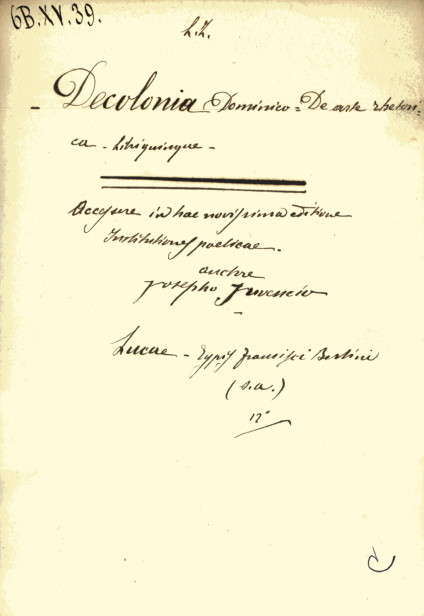 6B.XV.39.
L.L.
- Decolonia Dominico = De arte rhetori-
ca - Libri quinque -
Accessere in hac novissima editione
Institutiones poeticae.
auctore
Josepho Juvencio
-
Lucae - Typis Francisci Bertini
(s.a.)
12°